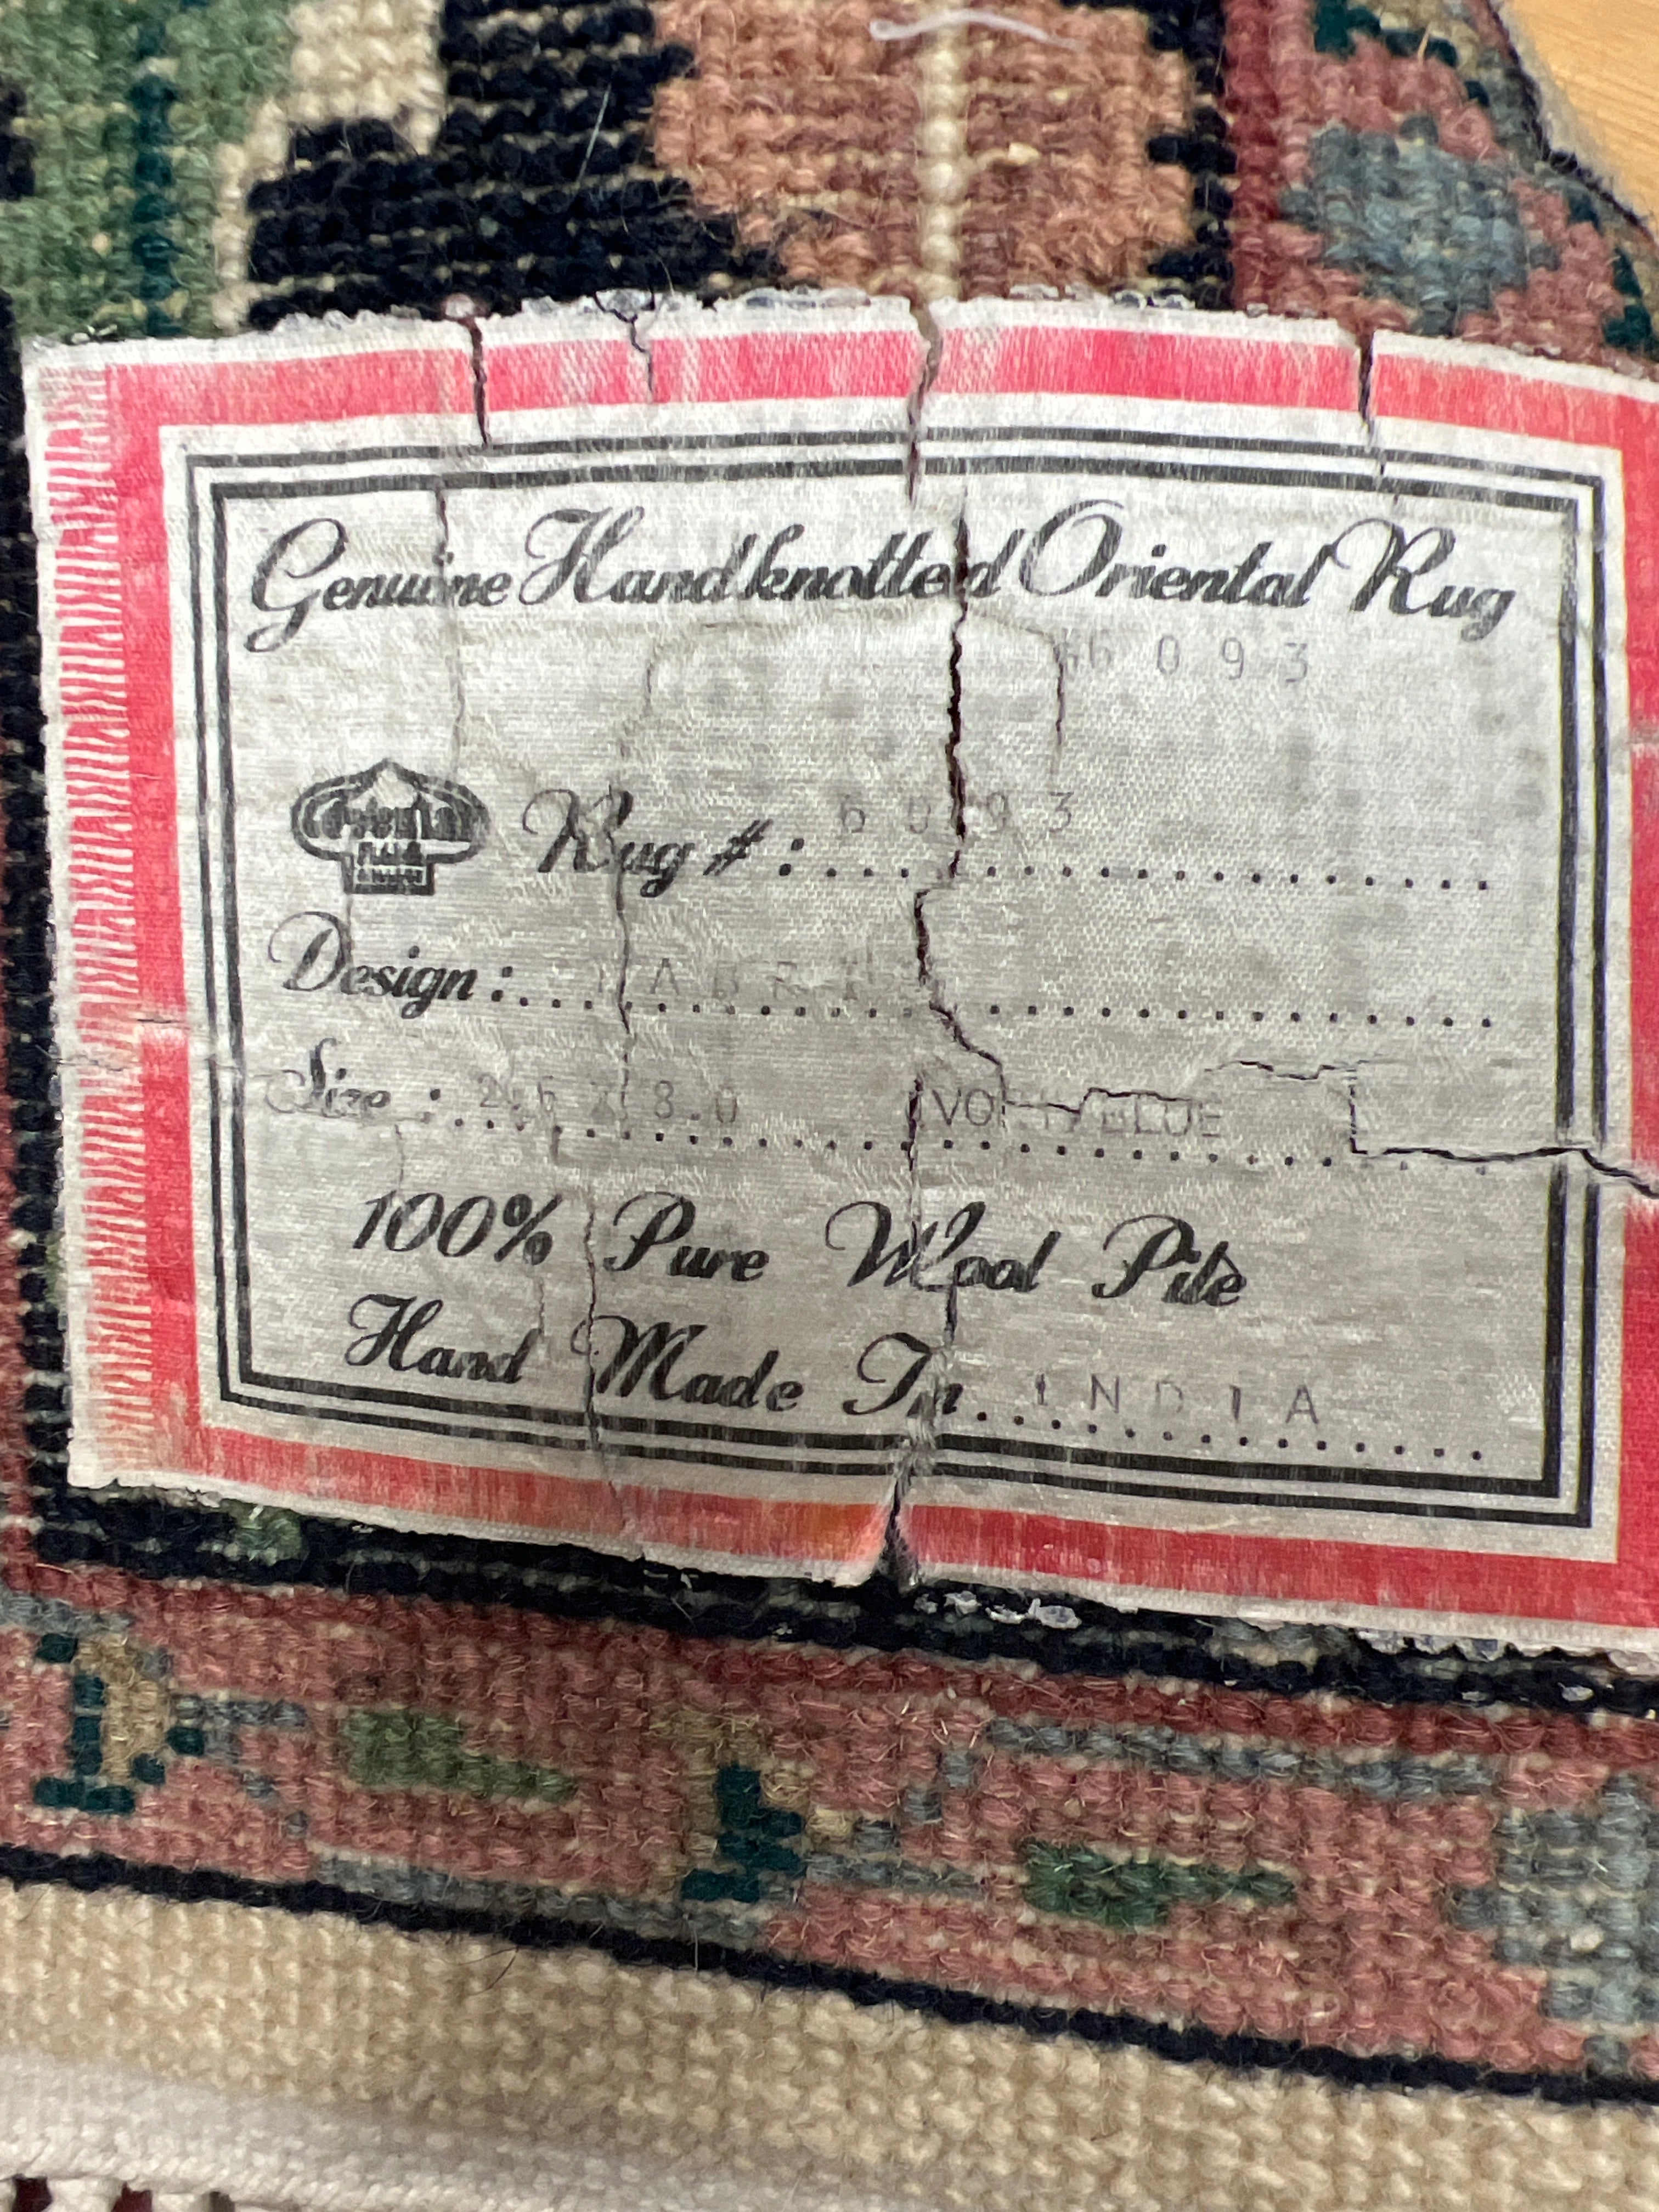 Genuine Handknotted Oriental Rug
#6093
Oriental
Rug #: 6093
Design:
Size : 2.6 X 8.0 IVORY/BLUE
100% Pure Wool Pile
Hand Made In INDIA